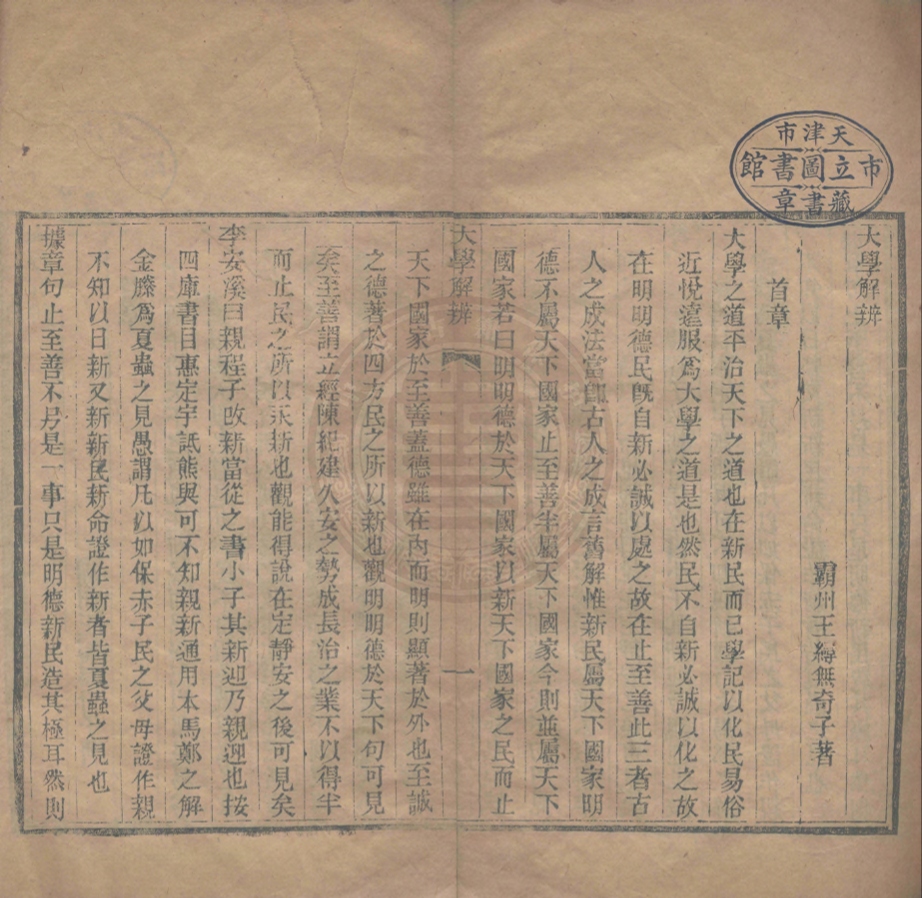 天津市
市立圖書館
藏書章
大學解辨
霸州王縛無奇子著
首章
大學之道平治天下之道也在新民而已學記以化民易俗
近悅遠服爲大學之道是也然民不自新必誠以化之故
在明明德民旣自新必誠以處之故在止至善此三者古
人之成法當卽古人之成言舊解惟新民屬天下國家明
德不屬天下國家止至善半屬天下國家今則並屬天下
國家若曰明明德於天下國家以新天下國家之民而止
大學解辨
一
天下國家於至善蓋德雖在內而明則顯著於外也至誠
之德著於四方民之所以新也觀明明德於天下句可見
矣至善謂立經陳紀建久安之勢成長治之業不以得半
而止民之所以永新也觀能得說在定靜安之後可見矣
李安溪曰親程子改新當從之書小子其新迎乃親迎也按
四庫書目惠定宇詆熊與可不知親新通用本馬鄭之解
金縢爲夏蟲之見愚謂凡以如保赤子民之父母證作親
不知以日新又新新民新命證作新者皆夏蟲之見也
據章句止至善不另是一事只是明德新民造其極耳然則